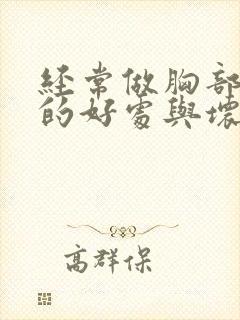 经常做胸部
的好处與壞
高群保